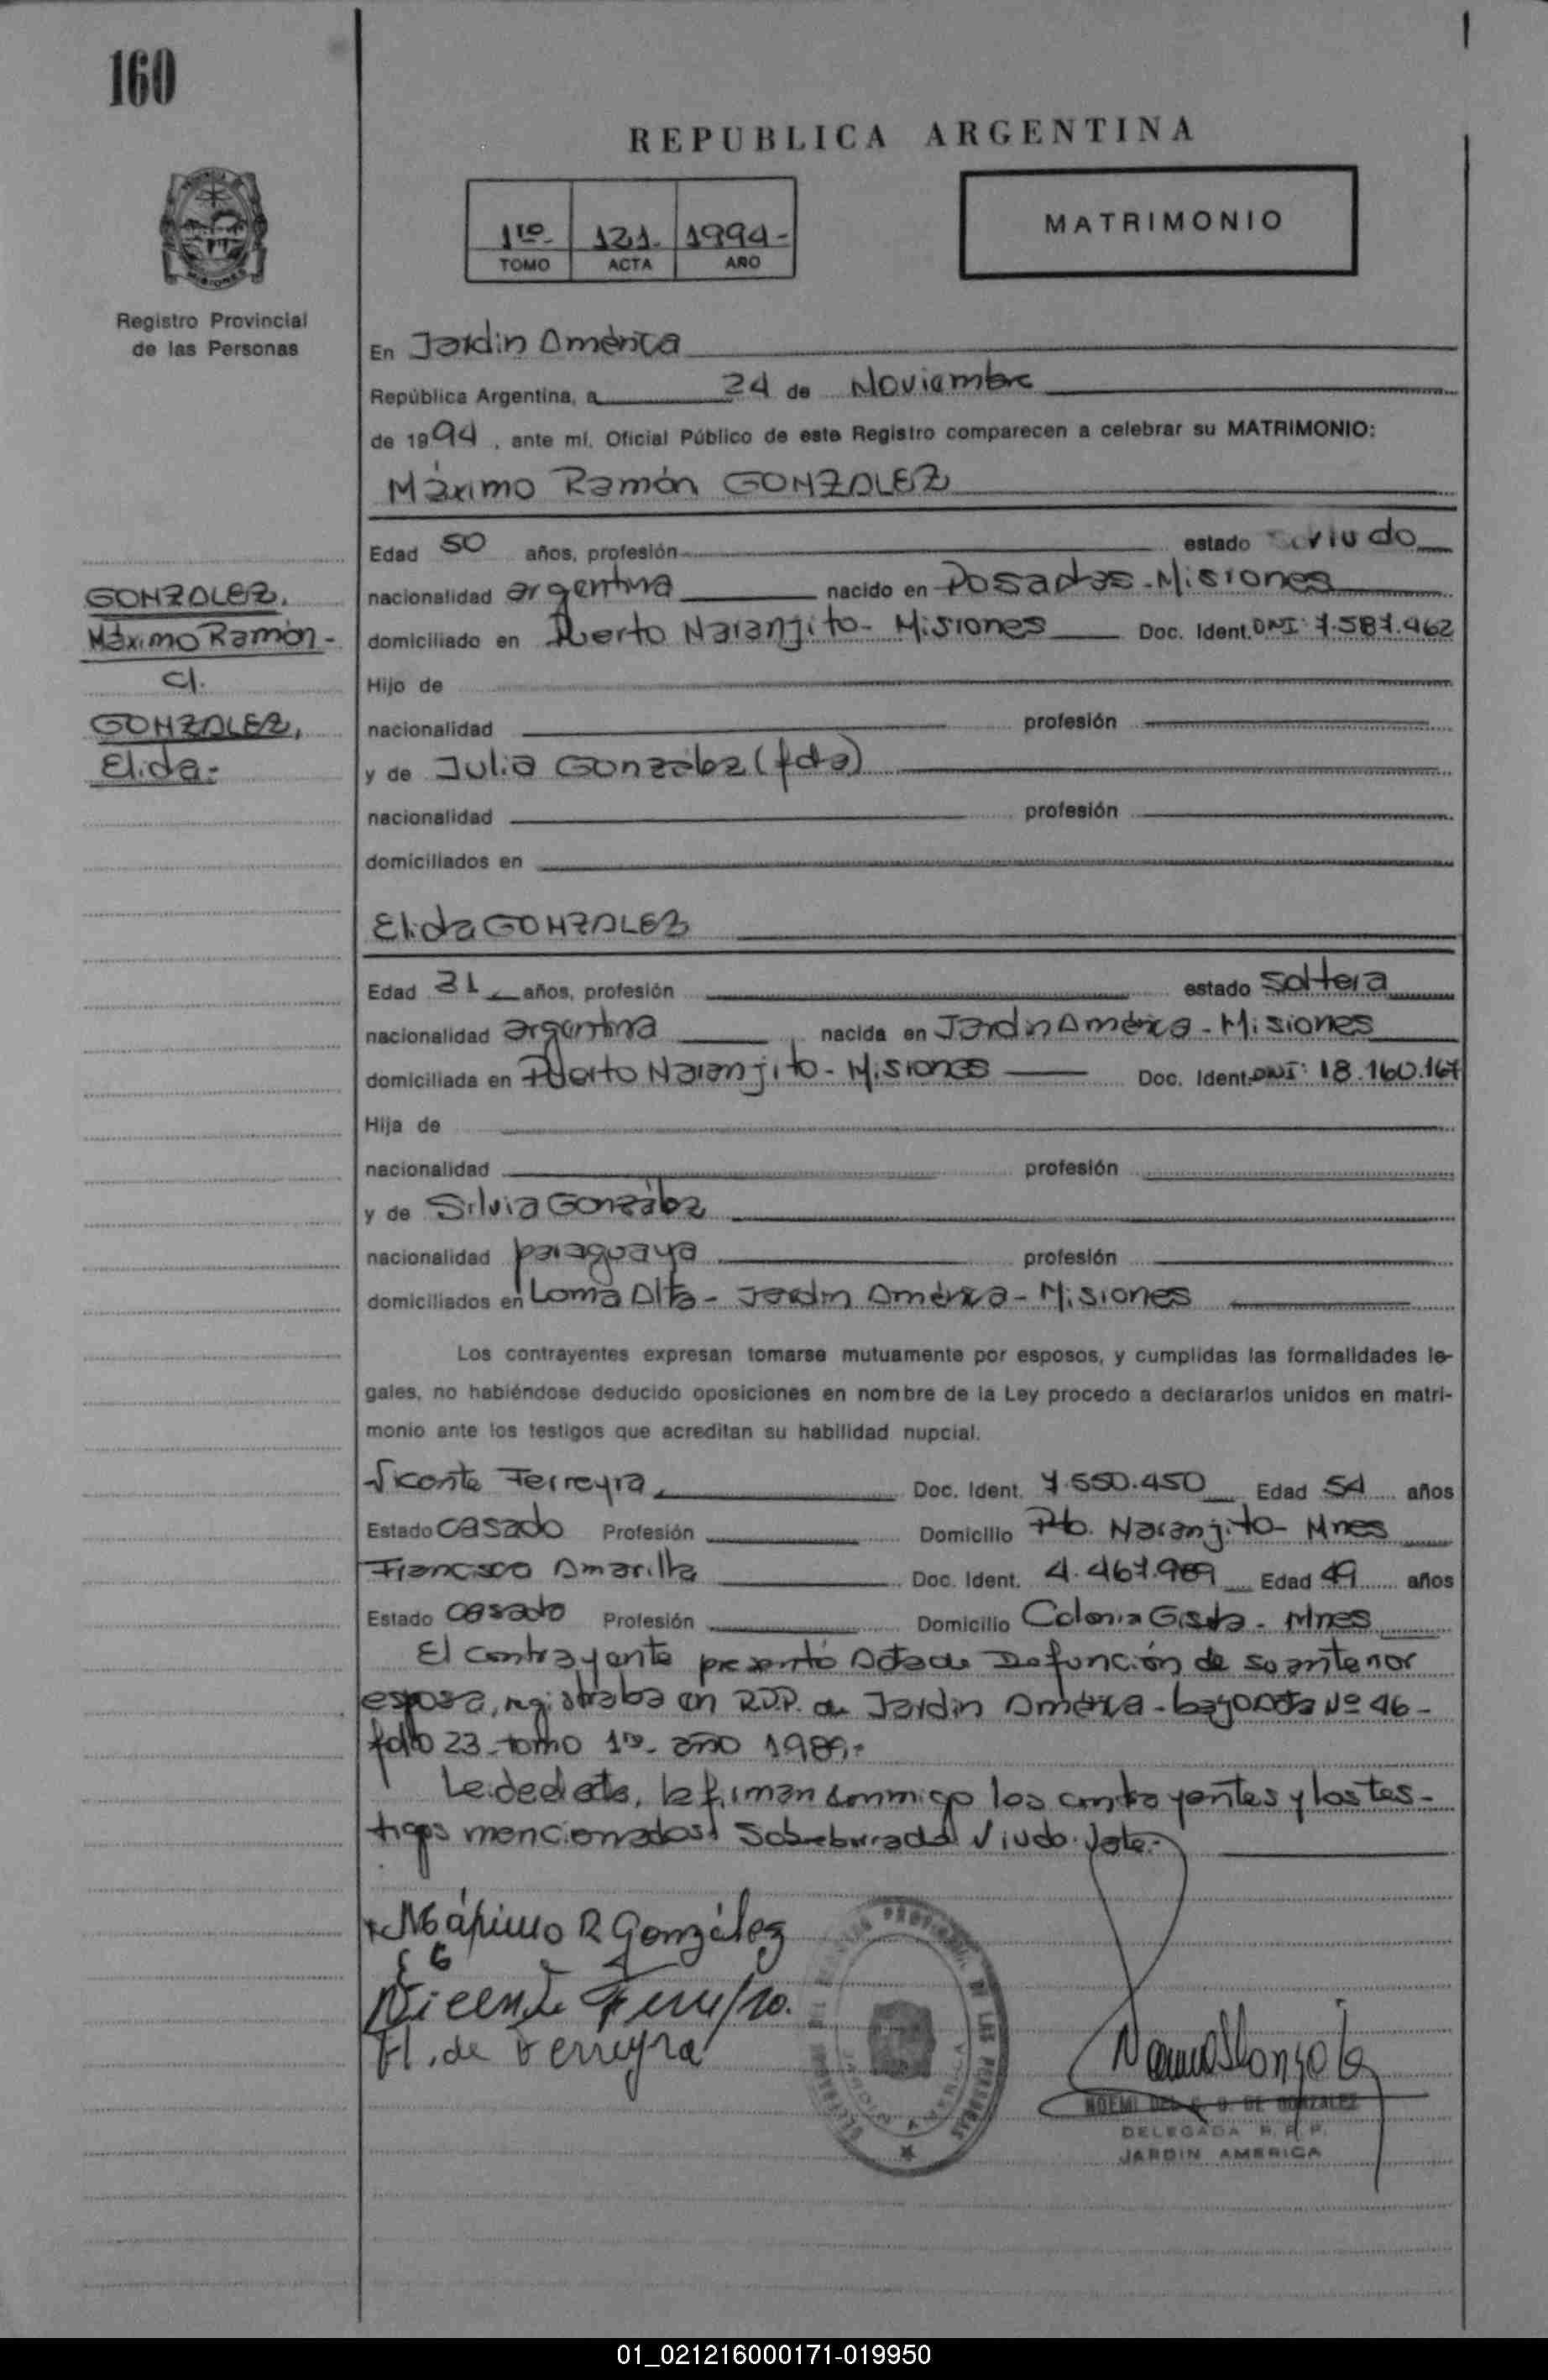 160
REPUBLICA ARGENTINA
1ro- 121- 1994-
TOMO ACTA AÑO
MATRIMONIO
Registro Provincial
de las Personas
En Jardin América
República Argentina, a 24 de Noviembre
de 1994, ante mí, Oficial Público de este Registro comparecen a celebrar su MATRIMONIO:
Máximo Ramón GONZALEZ
Edad 50 años, profesión estado viudo
nacionalidad argentina nacido en Posadas-Misiones
domiciliado en Puerto Naranjito- Misiones Doc. Ident. DNI: 7.587.462
Hijo de
nacionalidad profesión
y de Julia González (fda)
nacionalidad profesión
domiciliados en
GONZALEZ,
Máximo Ramón-
c/.
GONZALEZ,
Elida-
Elida GONZALEZ
Edad 31 años, profesión estado Soltera
nacionalidad argentina nacida en Jardin América - Misiones
domiciliada en Puerto Naranjito - Misiones Doc. Ident. DNI: 18.160.167
Hija de
nacionalidad profesión
y de Silvia González
nacionalidad paraguaya profesión
domiciliados en Loma Alta - Jardin América - Misiones
Los contrayentes expresan tomarse mutuamente por esposos, y cumplidas las formalidades le-
gales, no habiéndose deducido oposiciones en nombre de la Ley procedo a declararlos unidos en matri-
monio ante los testigos que acreditan su habilidad nupcial.
Vicente Ferreyra Doc. Ident. 7.550.450 Edad 54 años
Estado casado Profesión Domicilio Pto. Naranjito- Mnes
Francisco Amarilla Doc. Ident. 4.467.989 Edad 49 años
Estado casado Profesión Domicilio Colonia Gisela - Mnes
El contrayente presentó Acta de Defunción de su anterior
esposa, registraba en R.D.P. de Jardin América - bajo acta Nº 46-
folio 23- tomo 1ro- año 1989,-
Leida el acta, la firman conmigo los contrayentes y los tes-
tigos mencionados! Sobreborrado Viudo. Vale.-
Máximo R González
Vicente Ferreyra.
H. de Ferreyra
NOEMI DEL DE GONZALEZ
DELEGADA R. P. P.
JARDIN AMERICA
01_021216000171-019950